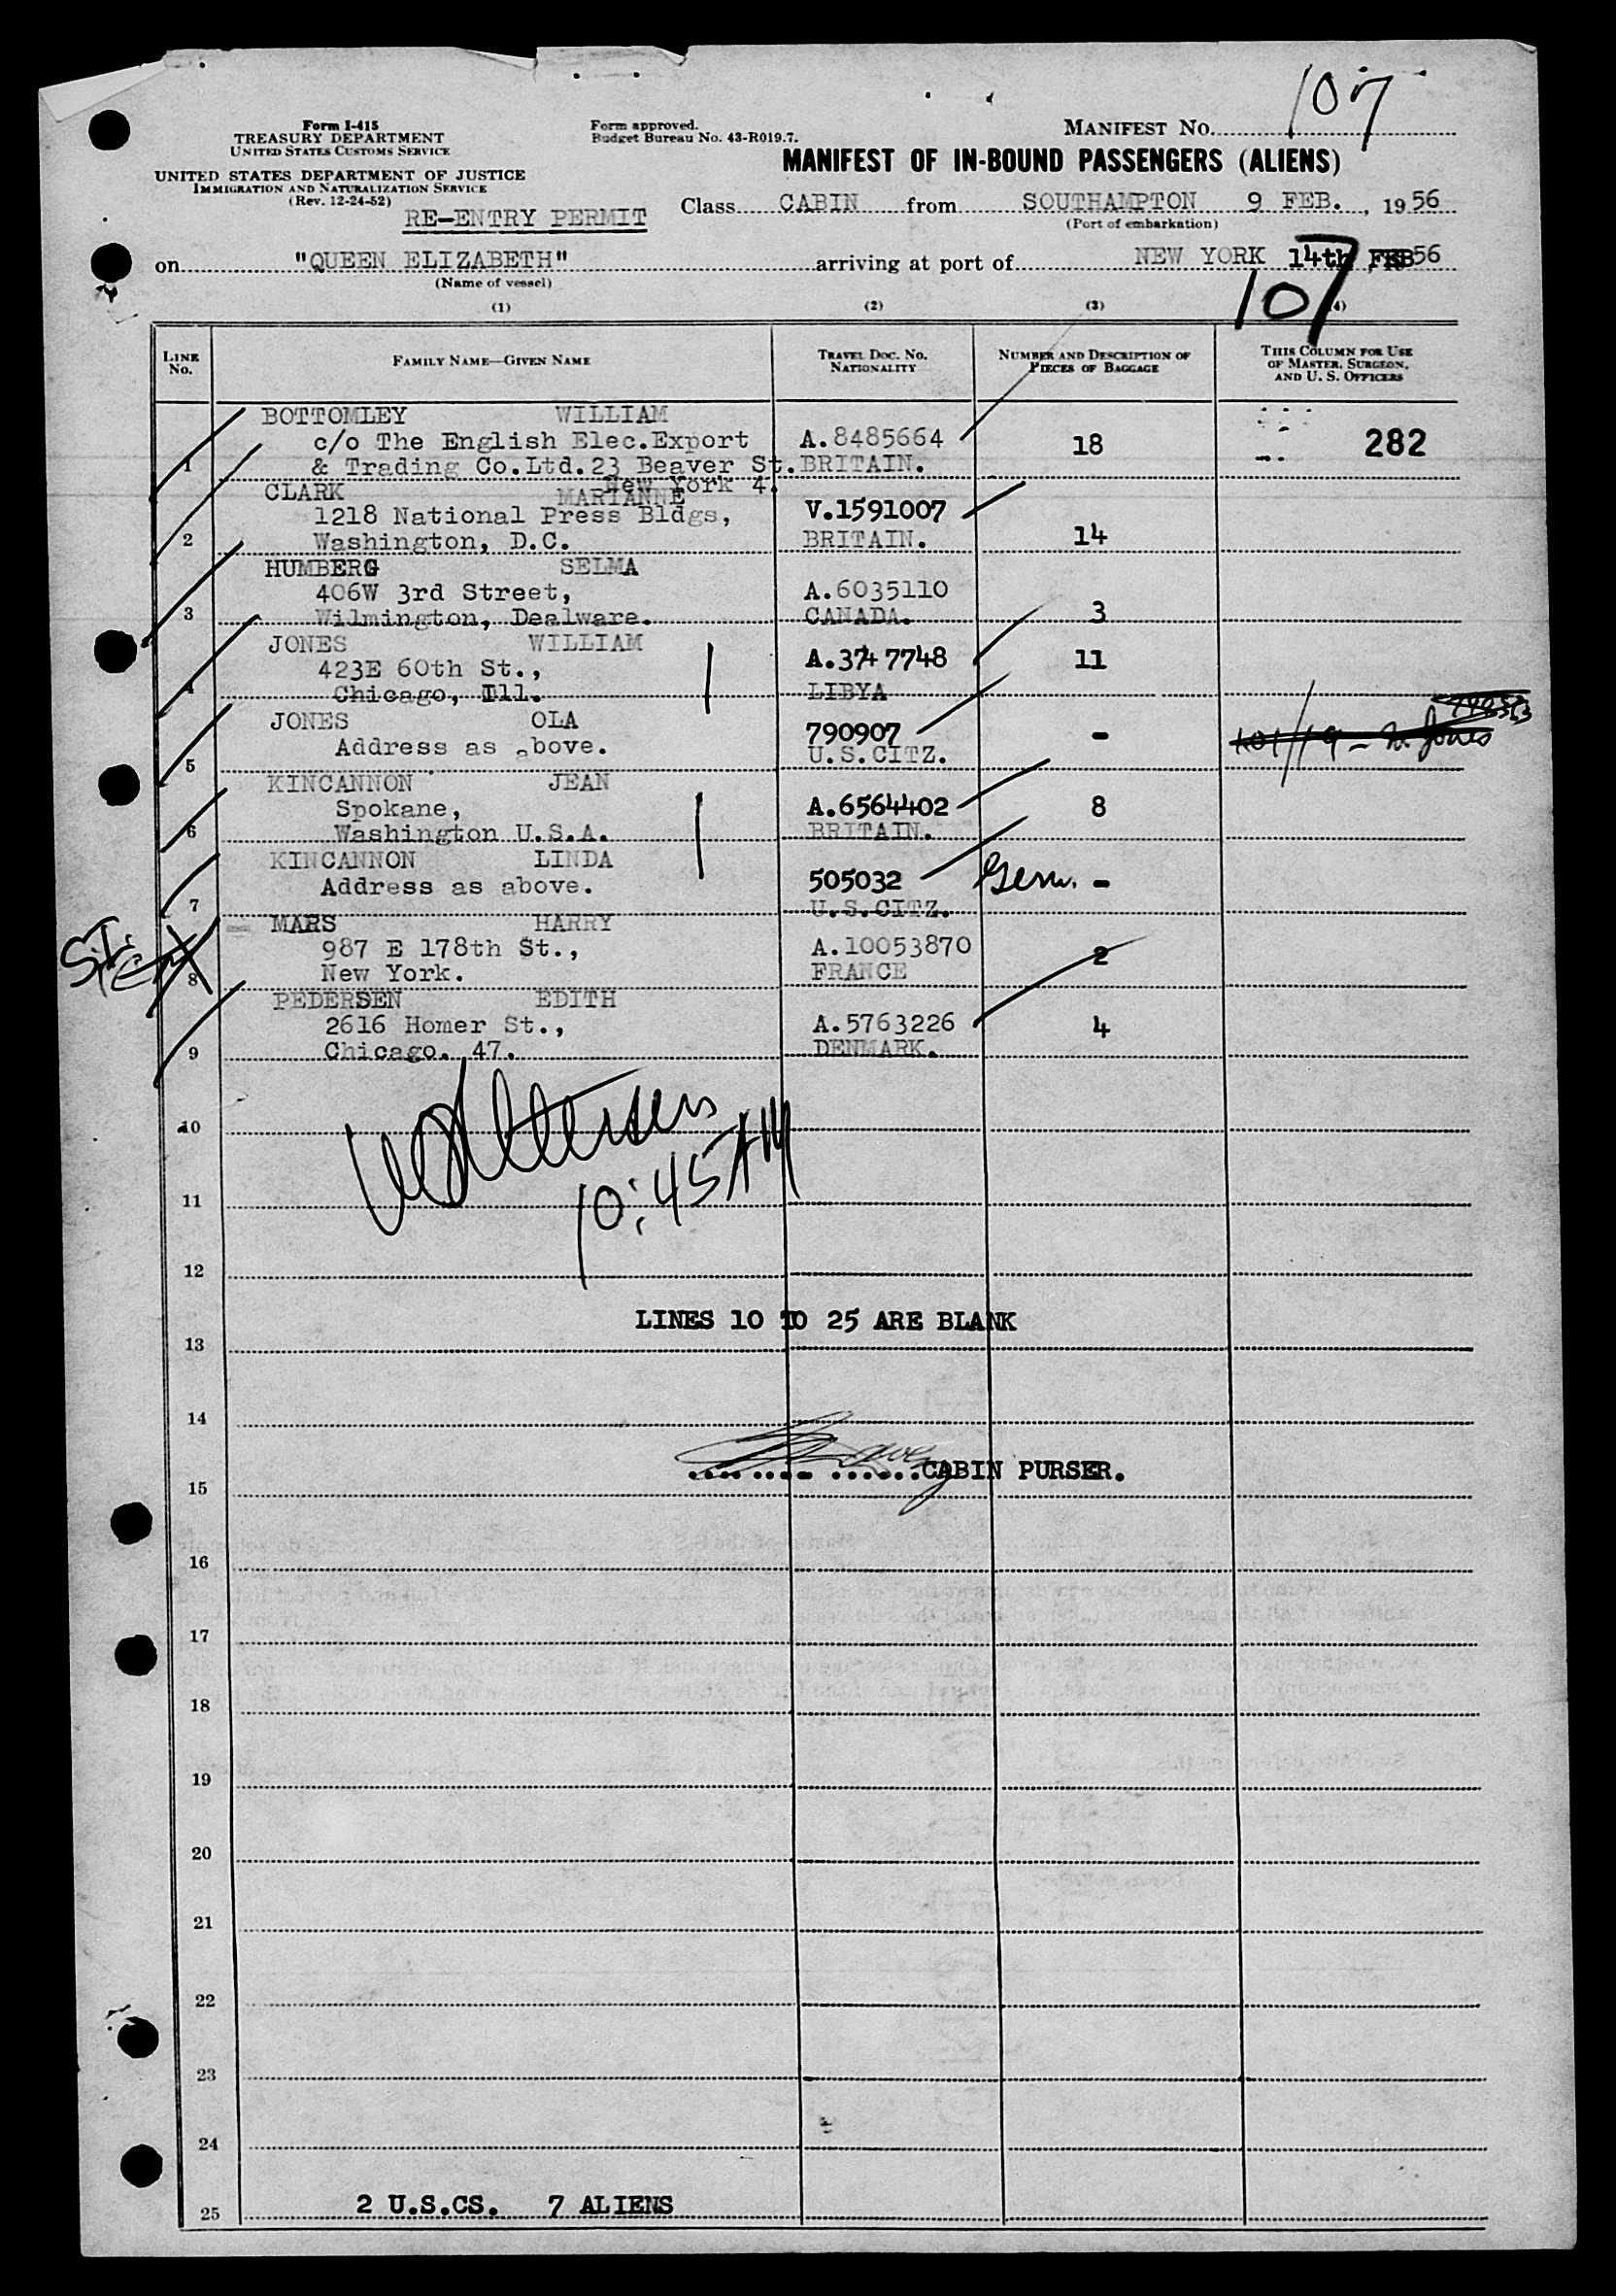 107
Form I-415
TREASURY DEPARTMENT
UNITED STATES CUSTOMS SERVICE
Form approved.
Budget Bureau No. 43-R019.7.
MANIFEST NO.
MANIFEST OF IN-BOUND PASSENGERS (ALIENS)
UNITED STATES DEPARTMENT OF JUSTICE
IMMIGRATION AND NATURALIZATION SERVICE
(Rev. 12-24-52)
RE-ENTRY PERMIT
Class CABIN from SOUTHAMPTON 9 FEB., 1956
(Port of embarkation)
on "QUEEN ELIZABETH" arriving at port of NEW YORK 14th FEB 56
(Name of vessel)
107
(1) (2) (3) (4)
LINE NO. FAMILY NAME—GIVEN NAME TRAVEL DOC. NO. NATIONALITY NUMBER AND DESCRIPTION OF PIECES OF BAGGAGE THIS COLUMN FOR USE OF MASTER, SURGEON, AND U. S. OFFICERS
BOTTOMLEY WILLIAM
c/o The English Elec.Export A.8485664 18 282
1 & Trading Co.Ltd.23 Beaver St. BRITAIN.
New York 4.
CLARK MARIANNE
1218 National Press Bldgs, V.1591007
2 Washington, D.C. BRITAIN. 14
HUMBERG SELMA
406W 3rd Street, A.6035110
3 Wilmington, Dealware. CANADA. 3
JONES WILLIAM
423E 60th St., A.3747748 11
4 Chicago, Ill. LIBYA
JONES OLA
Address as above. 790907 -
5 U.S.CITZ.
KINCANNON JEAN
Spokane, A.6564402 8
6 Washington U.S.A. BRITAIN.
KINCANNON LINDA
Address as above. 505032 Germ. -
7 U.S.CITZ.
MARS HARRY
987 E 178th St., A.10053870 2
S.I.
8 New York. FRANCE
PEDERSEN EDITH
2616 Homer St., A.5763226 4
9 Chicago. 47. DENMARK.
10
10:45 AM
11
12
LINES 10 TO 25 ARE BLANK
13
14
CABIN PURSER.
15
16
17
18
19
20
21
22
23
24
25 2 U.S.CS. 7 ALIENS